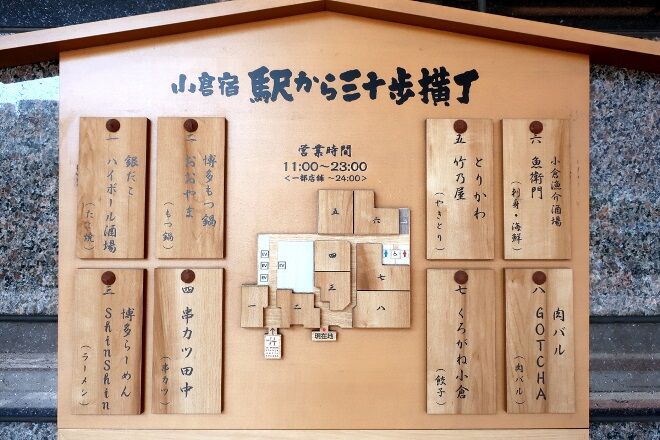 小倉宿 駅から三十歩横丁
営業時間
11:00〜23:00
<一部店舗 〜24:00>
一 銀だこ
ハイボール酒場
(たこ焼)
二 博多もつ鍋
おおやま
(もつ鍋)
三 博多らーめん
ShinShin
(ラーメン)
四 串カツ田中
(串カツ)
五 とりかわ
竹乃屋
(やきとり)
六 小倉漁介酒場
魚衛門
(刺身・海鮮)
七 くろがね小倉
(餃子)
八 肉バル
GOTCHA
(肉バル)
五
六
四
三
七
八
一
二
EV
EV
EV
現在地